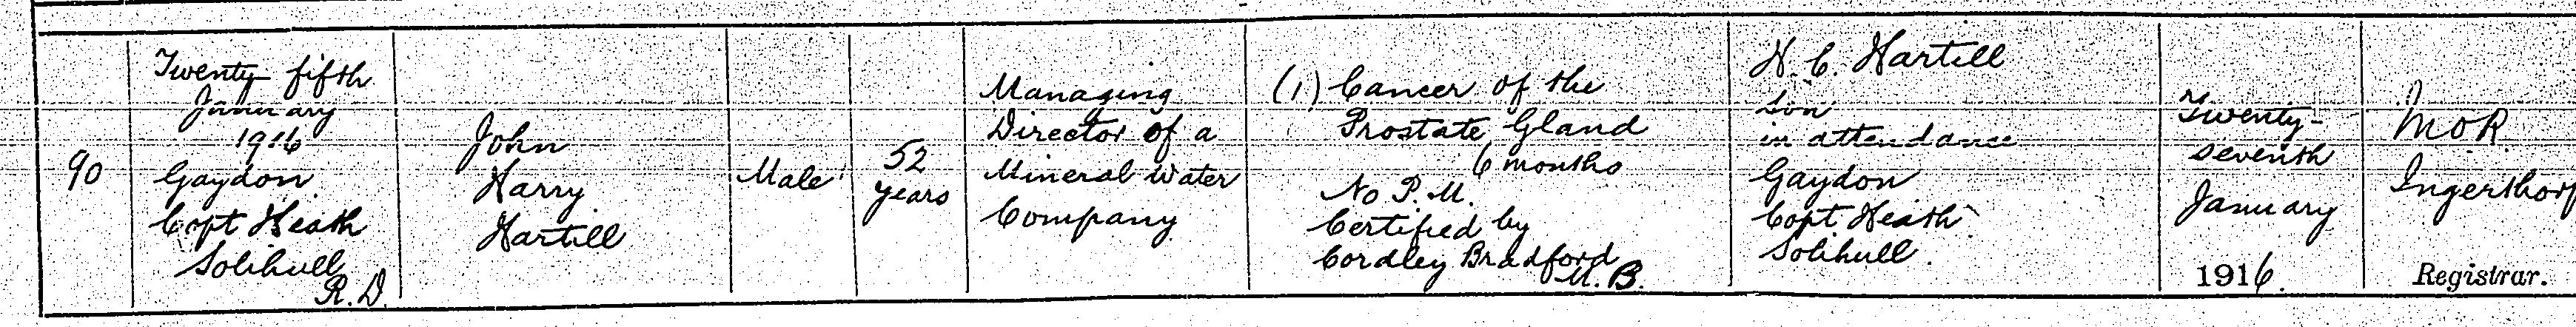 90
Twenty-fifth
January
1916
Gaydon
Copt Heath
Solihull
R.D.
John
Harry
Hartill
Male
52
years
Managing
Director of a
Mineral Water
Company
(1) Cancer of the
Prostate Gland
6 months
No P.M.
Certified by
Cordley Bradford
M.B.
H. C. Hartill
Son
in attendance
Gaydon
Copt Heath
Solihull.
Twenty-
seventh
January
1916.
Registrar.